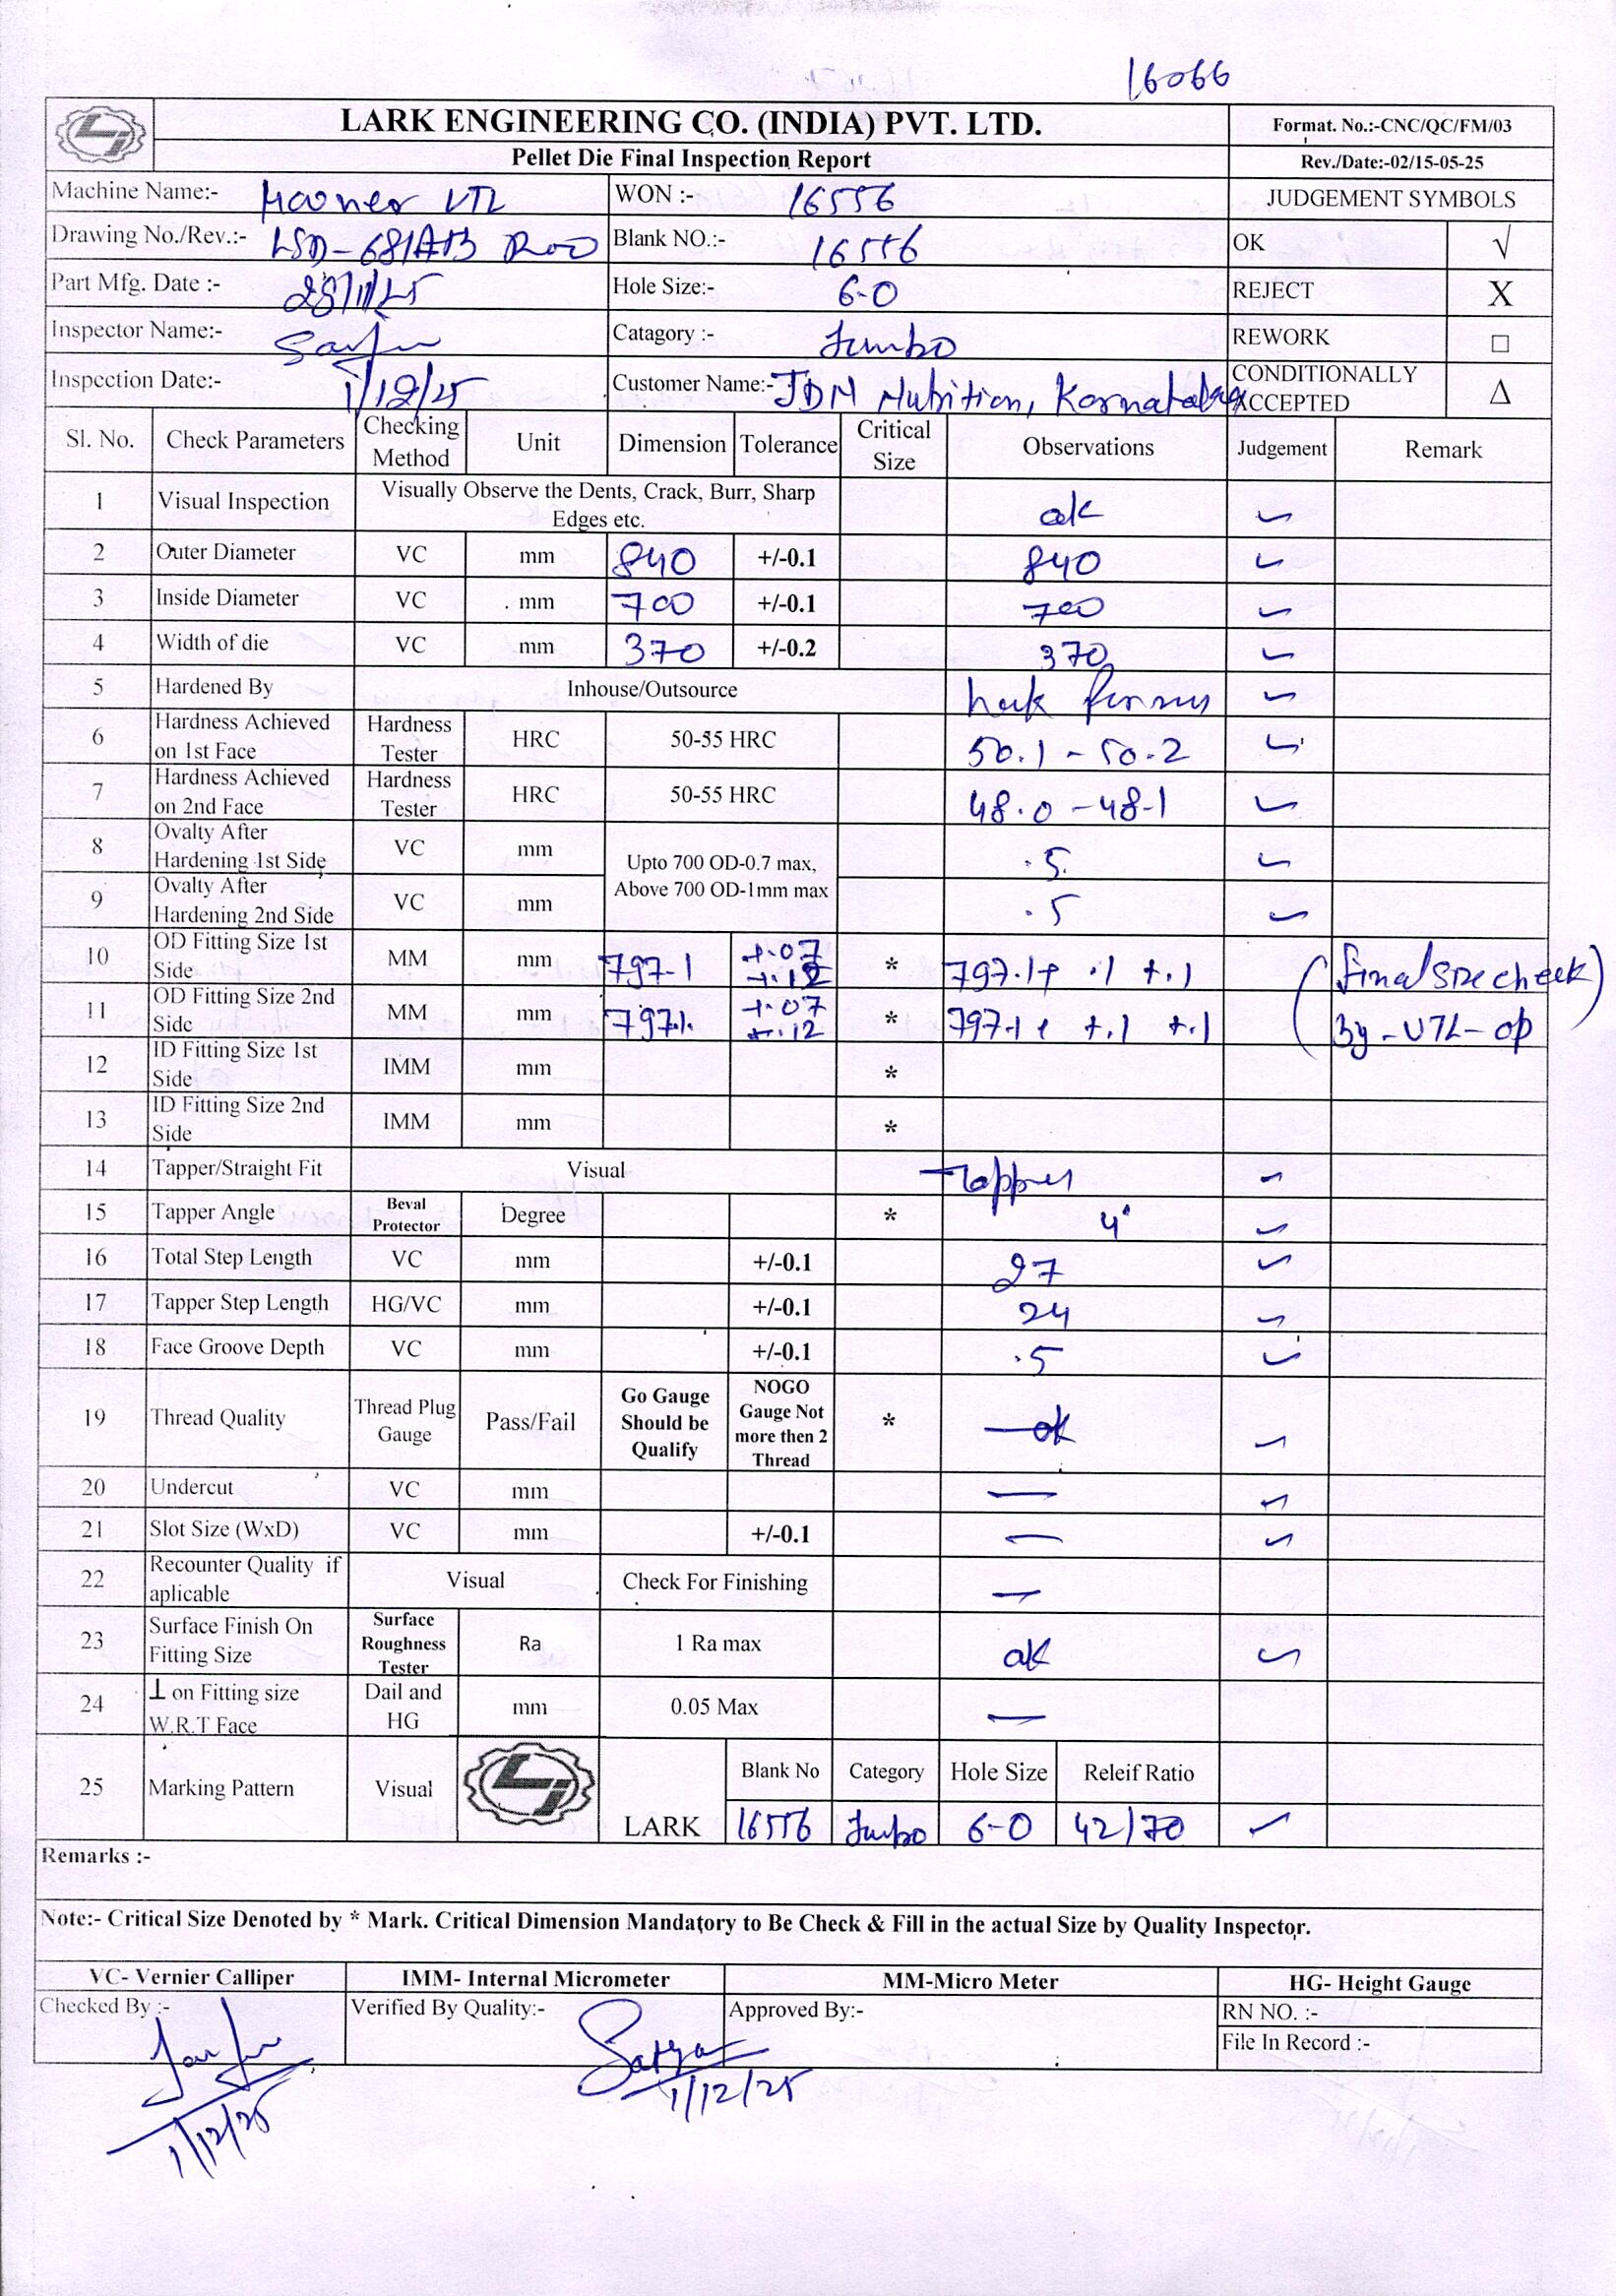 16066
LARK ENGINEERING CO. (INDIA) PVT. LTD.
Format. No.:-CNC/QC/FM/03
Pellet Die Final Inspection Report
Rev./Date:-02/15-05-25
Machine Name:- VTL WON :- 16556 JUDGEMENT SYMBOLS
Drawing No./Rev.:- LSD-681AB R00 Blank NO.:- 16556 OK √
Part Mfg. Date :- 28/11/25 Hole Size:- 6-0 REJECT X
Inspector Name:- Catagory :- Jumbo REWORK □
Inspection Date:- 1/12/25 Customer Name:- JDM Nutrition, Karnataka CONDITIONALLY ACCEPTED Δ
Sl. No. Check Parameters Checking Method Unit Dimension Tolerance Critical Size Observations Judgement Remark
1 Visual Inspection Visually Observe the Dents, Crack, Burr, Sharp Edges etc. ok ✓
2 Outer Diameter VC mm 840 +/-0.1 840 ✓
3 Inside Diameter VC mm 700 +/-0.1 700 ✓
4 Width of die VC mm 370 +/-0.2 370 ✓
5 Hardened By Inhouse/Outsource ✓
6 Hardness Achieved on 1st Face Hardness Tester HRC 50-55 HRC 50.1 - 50.2 ✓
7 Hardness Achieved on 2nd Face Hardness Tester HRC 50-55 HRC 48.0 - 48.1 ✓
8 Ovalty After Hardening 1st Side VC mm Upto 700 OD-0.7 max, Above 700 OD-1mm max .5 ✓
9 Ovalty After Hardening 2nd Side VC mm .5 ✓
10 OD Fitting Size 1st Side MM mm 797.1 +.07 +.12 * 797.1+ .1 +.1 (final size check
11 OD Fitting Size 2nd Side MM mm 797.1 +.07 +.12 * 797.1+ +.1 +.1 By-VTL-op)
12 ID Fitting Size 1st Side IMM mm *
13 ID Fitting Size 2nd Side IMM mm *
14 Tapper/Straight Fit Visual Tapper ✓
15 Tapper Angle Beval Protector Degree * 4° ✓
16 Total Step Length VC mm +/-0.1 27 ✓
17 Tapper Step Length HG/VC mm +/-0.1 24 ✓
18 Face Groove Depth VC mm +/-0.1 .5 ✓
19 Thread Quality Thread Plug Gauge Pass/Fail Go Gauge Should be Qualify NOGO Gauge Not more then 2 Thread * ok ✓
20 Undercut VC mm — ✓
21 Slot Size (WxD) VC mm +/-0.1 — ✓
22 Recounter Quality if aplicable Visual Check For Finishing —
23 Surface Finish On Fitting Size Surface Roughness Tester Ra 1 Ra max ok ✓
24 ⊥ on Fitting size W.R.T Face Dail and HG mm 0.05 Max —
25 Marking Pattern Visual LARK Blank No Category Hole Size Releif Ratio
16556 Jumbo 6-0 42/70 ✓
Remarks :-
Note:- Critical Size Denoted by * Mark. Critical Dimension Mandatory to Be Check & Fill in the actual Size by Quality Inspector.
VC- Vernier Calliper IMM- Internal Micrometer MM-Micro Meter HG- Height Gauge
Checked By :- Verified By Quality:- Approved By:- RN NO. :-
File In Record :-
Satya
1/12/25 1/12/25